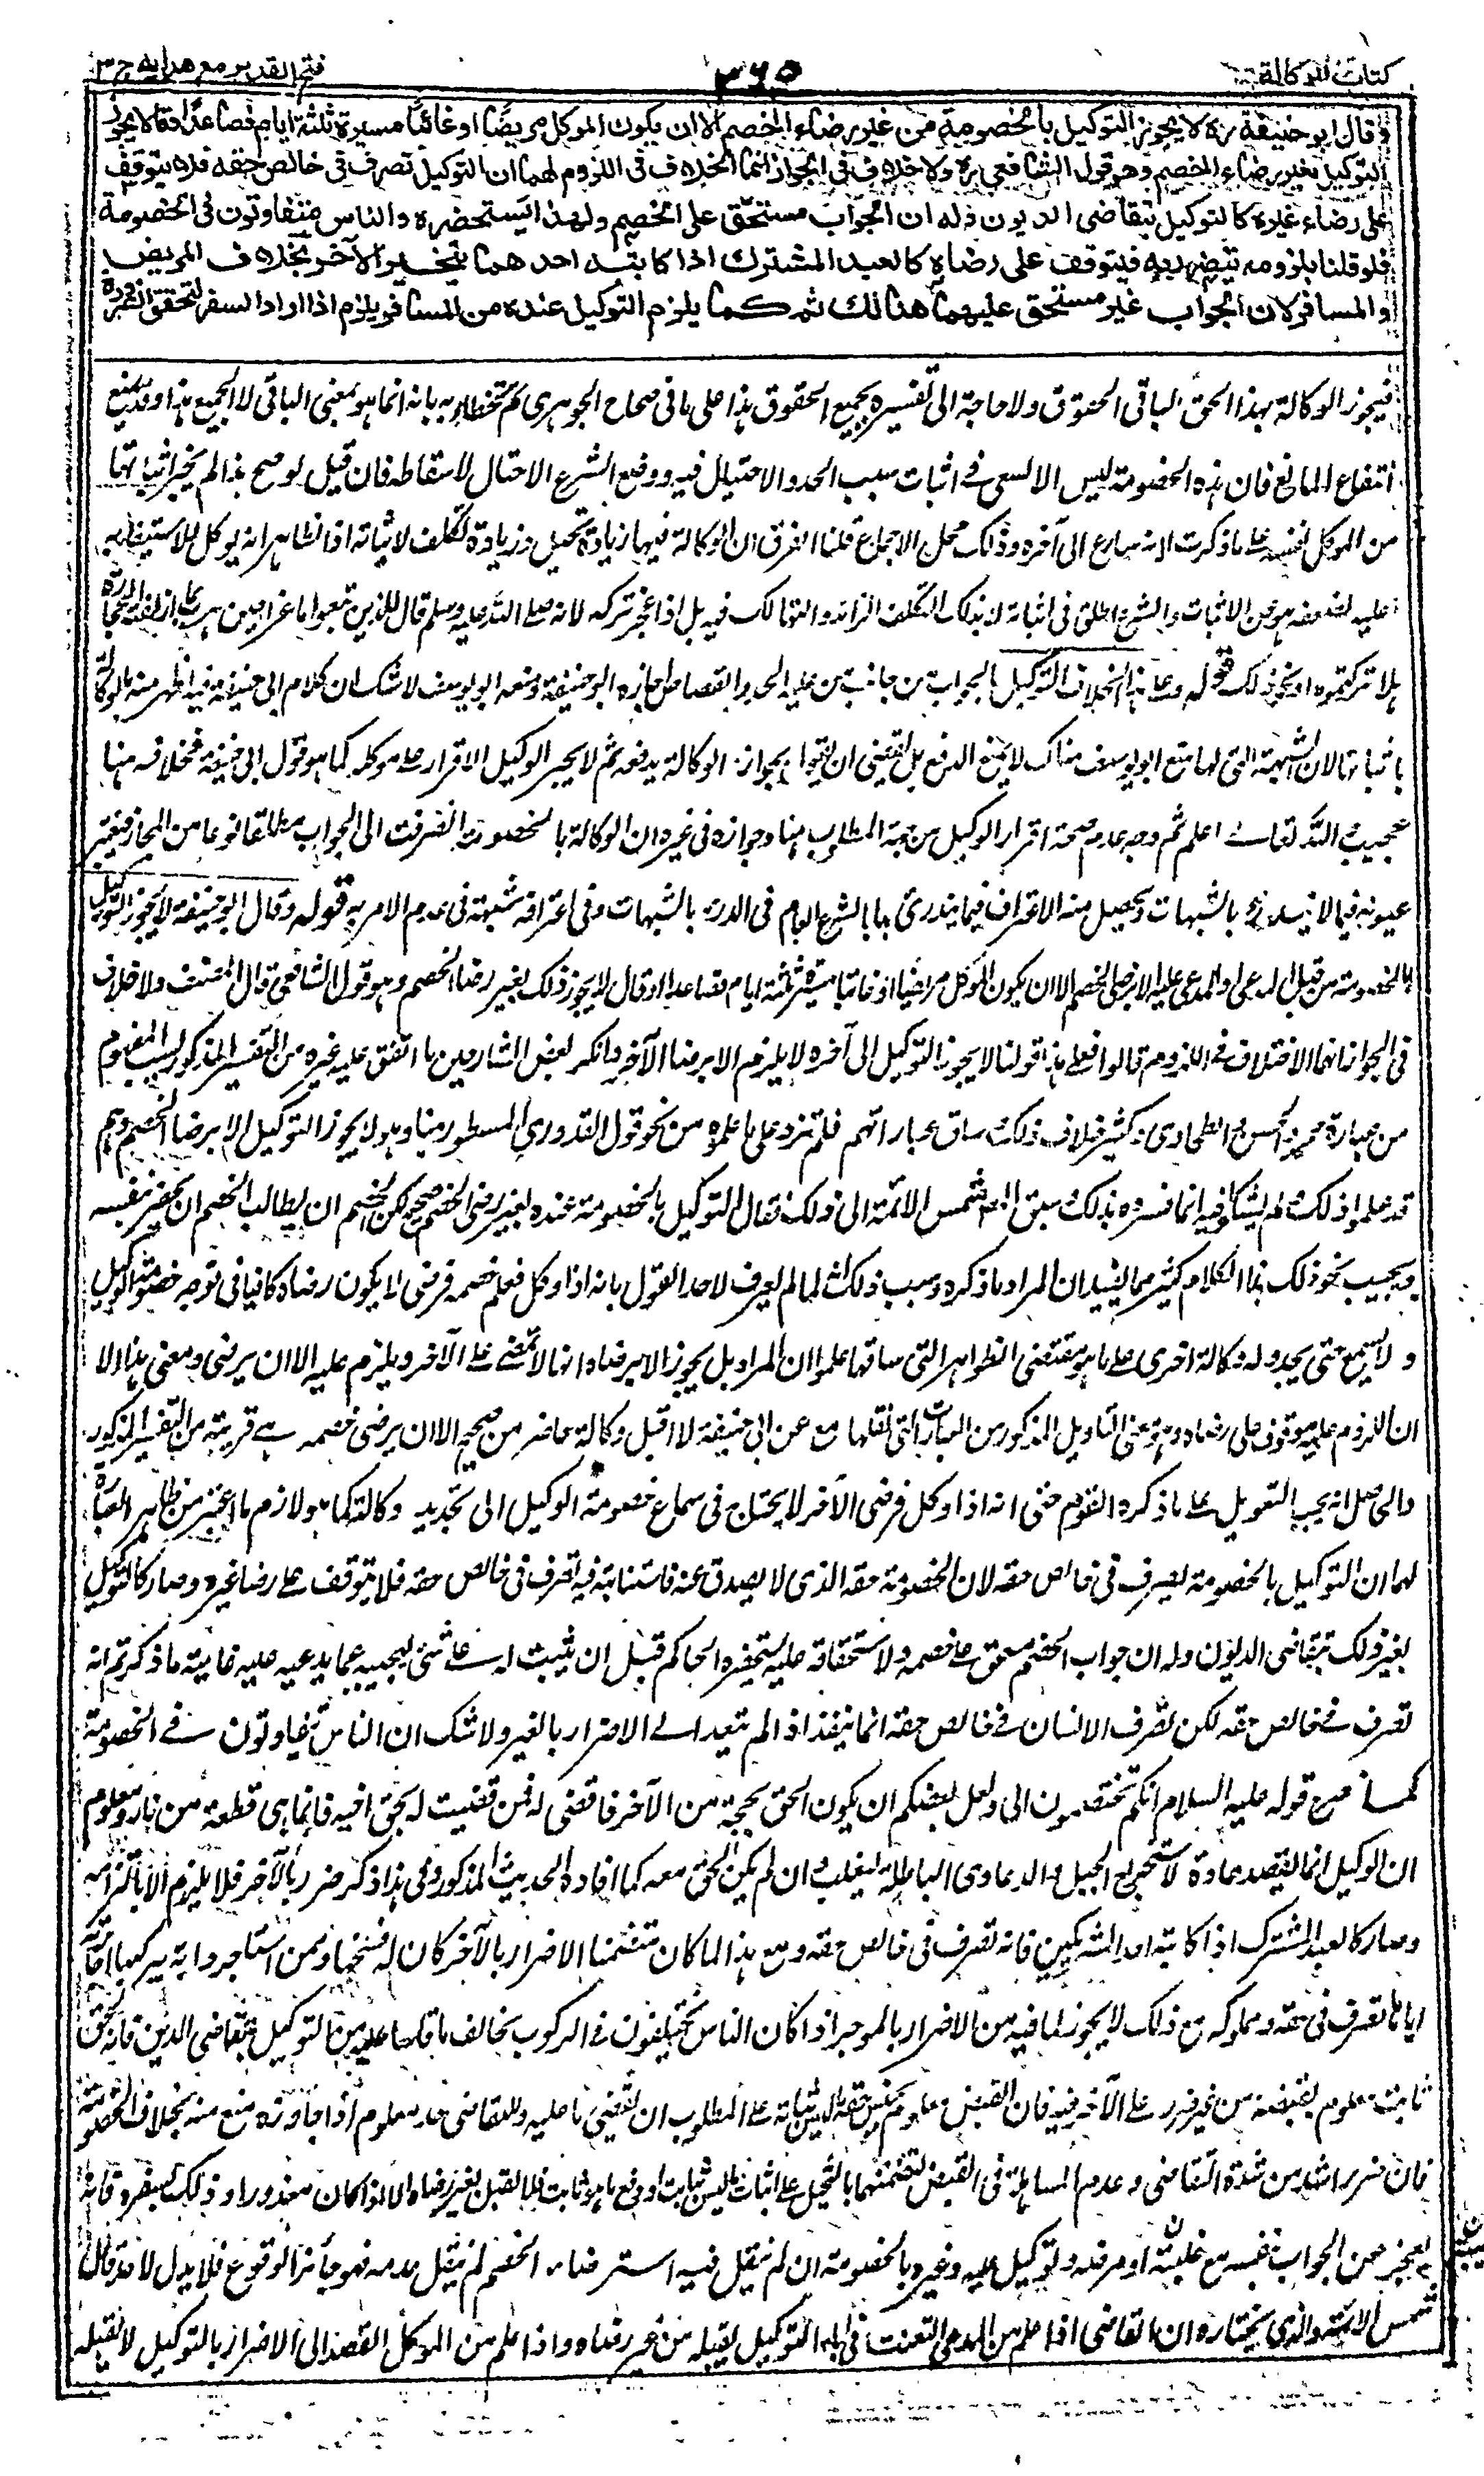 كتاب الوكالة
٣٦٥
فتح القدير مع هدايه ج ٣
وقال ابو حنيفة ره لا يجوز التوكيل بالخصومة من غير رضاء الخصم الا ان يكون الموكل مريضًا او غائبًا مسيرة ثلثة ايام فصاعدًا وقالا يجوز
التوكيل بغير رضاء الخصم وهو قول الشافعي ره ولا خلاف في الجواز انما الخلاف في اللزوم لهما ان التوكيل تصرف في خالص حقه فلا يتوقف
على رضاء غيره كالتوكيل بتقاضى الديون وله ان الجواب مستحق على الخصم ولهذا يستحضره والناس متفاوتون في الخصومة
فلو قلنا بلزومه يتضرر به فيتوقف على رضاه كالعبد المشترك اذا كاتبه احدهما يتخير الآخر بخلاف المريض
والمسافر لان الجواب غير مستحق عليهما هنالك ثم كما يلزم التوكيل عنده من المسافر يلزم اذا اراد السفر لتحقق الضرورة
فيجوز الوكالة بهذا الحق لباقي الحقوق ولا حاجة الى تفسيره بجميع الحقوق هذا على ما في صحاح الجوهرى ثم تخطئته به بانه انما هو بمعنى الباقي لا الجميع هذا وقد يمنع
انتفاع المانع فان هذه الخصومة ليس الا لسعى فى اثبات سبب الحد والاحتيال فيه ووضع الشرع الاحتيال لاسقاطه فان قيل لو صح هذا لم يجز اثباتها
من الموكل لنفسه على ما ذكرت لانه سارع الى آخره وذلك محل الاجماع قلنا الفرق ان الوكالة فيها زيادة تحيل وزيادة تكلف لاثباته اذ الظاهر انه يوكل للاستيفاء به
عليه لضعفه هو عن الاثبات والشرع اطلق في اثباته لا بذلك التكلف الزائد والتهالك فيه بل اذا عجز تركه لانه صلى الله عليه وسلم قال للذين تبعوا ماعزا حين هرب لما ازلقته الحجارة
هلا تركتموه او نحو ذلك قوله وعلى هذا الخلاف التوكيل بالجواب من جانب من عليه الحد والقصاص اجازه ابو حنيفة ومنعه ابو يوسف لا شك ان كلام ابي حنيفة فيه اظهر منه بالوكالة
باثباتها لان الشبهة التى لها منع ابو يوسف هناك لا يمنع الدفع بل يقتضى ان يقولوا بجواز الوكالة بدفعه ثم لا يجيز الوكيل الاقرار على موكله كما هو قول ابى حنيفة فخلافه هنا
عجيب والله تعالى اعلم ثم وجه عدم صحة اقرار الوكيل من جهة المطلوب هنا وجوازه فى غيره ان الوكالة بالخصومة انصرفت الى الجواب مطلقا نوعا من المجاز فيعتبر
عمومه فيما لا يندرئ بالشبهات ويحصل منه الاعتراف فيما يندرئ بها بالشرع العام فى الدرء بالشبهات وفى اعترافه شبهة فى عدم الامر به قوله وقال ابو حنيفة لا يجوز التوكيل
بالخصومة من قبل المدعى او المدعى عليه الا برضى الخصم الا ان يكون الموكل مريضا او غائبا مسيرة ثلثة ايام فصاعدا وقالا يجوز ذلك بغير رضا الخصم وهو قول الشافعى قال المصنف ولا خلاف
فى الجواز انما الاختلاف فى اللزوم قالوا فعلى هذا قولنا لا يجوز التوكيل الى آخره لا يلزم الا برضا الآخر وانكر بعض الشارحين ما اتفق عليه غيره من التفسير المذكور لسبب المفهوم
من عبارة محمد بن الحسن والطحاوى وكثير خلاف ذلك وساق عباراتهم فلم تزد على ما علموه من نحو قول القدورى المسطور هنا وهو لا يجوز التوكيل الا برضا الخصم وهم
قد علموا ذلك ولم يشكوا فيه انما فسروه بذلك سبق اليه شمس الائمة الى ذلك فقال التوكيل بالخصومة عنده بغير رضى الخصم صحيح لكن للخصم ان يطالب الخصم ان يحضر بنفسه
ويجيب نحو ذلك هذا الكلام كثير مما يفيد ان المراد ما ذكره وسبب ذلك انه لما لم يعرف لاحد القول بانه اذا وكل فعلم خصمه فرضى لا يكون رضاه كافيا في توجه خصومة الوكيل
ولا يسمع حتى يجدد له وكالة اخرى على ما هو مقتضى الظواهر التى ساقها علموا ان المراد بل يجوز الا برضاه انها لا تمضى على الآخر ويلزم عليه الا ان يرضى ومعنى هذا الا
ان اللزوم عليه موقوف على رضاه وهو معنى التأويل المذكور من العبارات التى نقلها مع عن ابى حنيفة لا اقبل وكالة حاضر من صحيح الا ان يرضى خصمه هى قريبة من التفسير المذكور
والحاصل انه يجب التعويل على ما ذكره القوم حتى انه اذا وكل فرضى الآخر لا يحتاج فى سماع خصومة الوكيل الى تجديد وكالة كما هو لازم ما اعتبر من ظاهر العبارة
لهما ان التوكيل بالخصومة تصرف فى خالص حقه لان الخصومة حقه الذى لا يصدق عنه فاستنابته فيه تصرف فى خالص حقه فلا يتوقف على رضا غيره وصار كالتوكيل
بغير ذلك بتقاضى الديون وله ان جواب الخصم مستحق على خصمه ولاستحقاقه عليه يستحضره الحاكم قبل ان يثبت له على شئ ليجيبه عما يدعيه عليه غايته ما ذكرتم انه
تصرف فى خالص حقه لكن تصرف الانسان فى خالص حقه انما ينفذ اذا لم يتعد الى الاضرار بالغير ولا شك ان الناس يتفاوتون فى الخصومة
كما صرح قوله عليه السلام انكم تختصمون الى ولعل بعضكم ان يكون الحق بحجته من الآخر فاقضى له فمن قضيت له بحق اخيه فانما هى قطعة من نار ومعلوم
ان الوكيل انما يقصد عادة لاستخراج الحيل والدعاوى الباطلة ليغلب وان لم يكن الحق معه كما افاده الحديث المذكور وفى هذا ذكر ضرر بالآخر فلا يلزم الا بالتزامه
وصار كالعبد المشترك اذا كاتبه احد الشريكين فانه تصرف فى خالص حقه ومع هذا لما كان متضمنا الاضرار بالآخر كان له فسخها وكمن استأجر دابة ليركبها اقامته
اياها تصرف فى حقه ومملوكه مع ذلك لا يجوز لما فيه من الاضرار بالموجر اذا كان الناس يختلفون فى الركوب بخالف ما قاسا عليه من التوكيل بتقاضى الدين فانه حق
ثابت معلوم يقبضه من غير ضرر على الآخر فيه فان القبض معلوم على المطلوب ان يقضى ما عليه وللتقاضى حد معلوم اذا جاوزه منع منه بخلاف الخصومة
فان ضررها اشد من شدة التقاضى وعدم المساهلة فى القبض لتضمنها بالتحيل على اثبات ما ليس ثابت او دفع ما هو ثابت فلا يقبل بغير رضاه الا اذا كان معذورا وذلك بسفره فانه
يعجز عن الجواب بنفسه مع غيبته او مرضه وتوكيل عليه وغيره بالخصومة ان لم ينقل فيه استرضاء الخصم لم ينقل عدمه فهو جائز الوقوع فلا يدل لاحد قال
شمس الائمة والذى يختاره ان القاضى اذا علم من المدعى التعنت فى اباء التوكيل يقبله من غير رضاه واذا علم من الموكل القصد الى الاضرار بالتوكيل لا يقبله